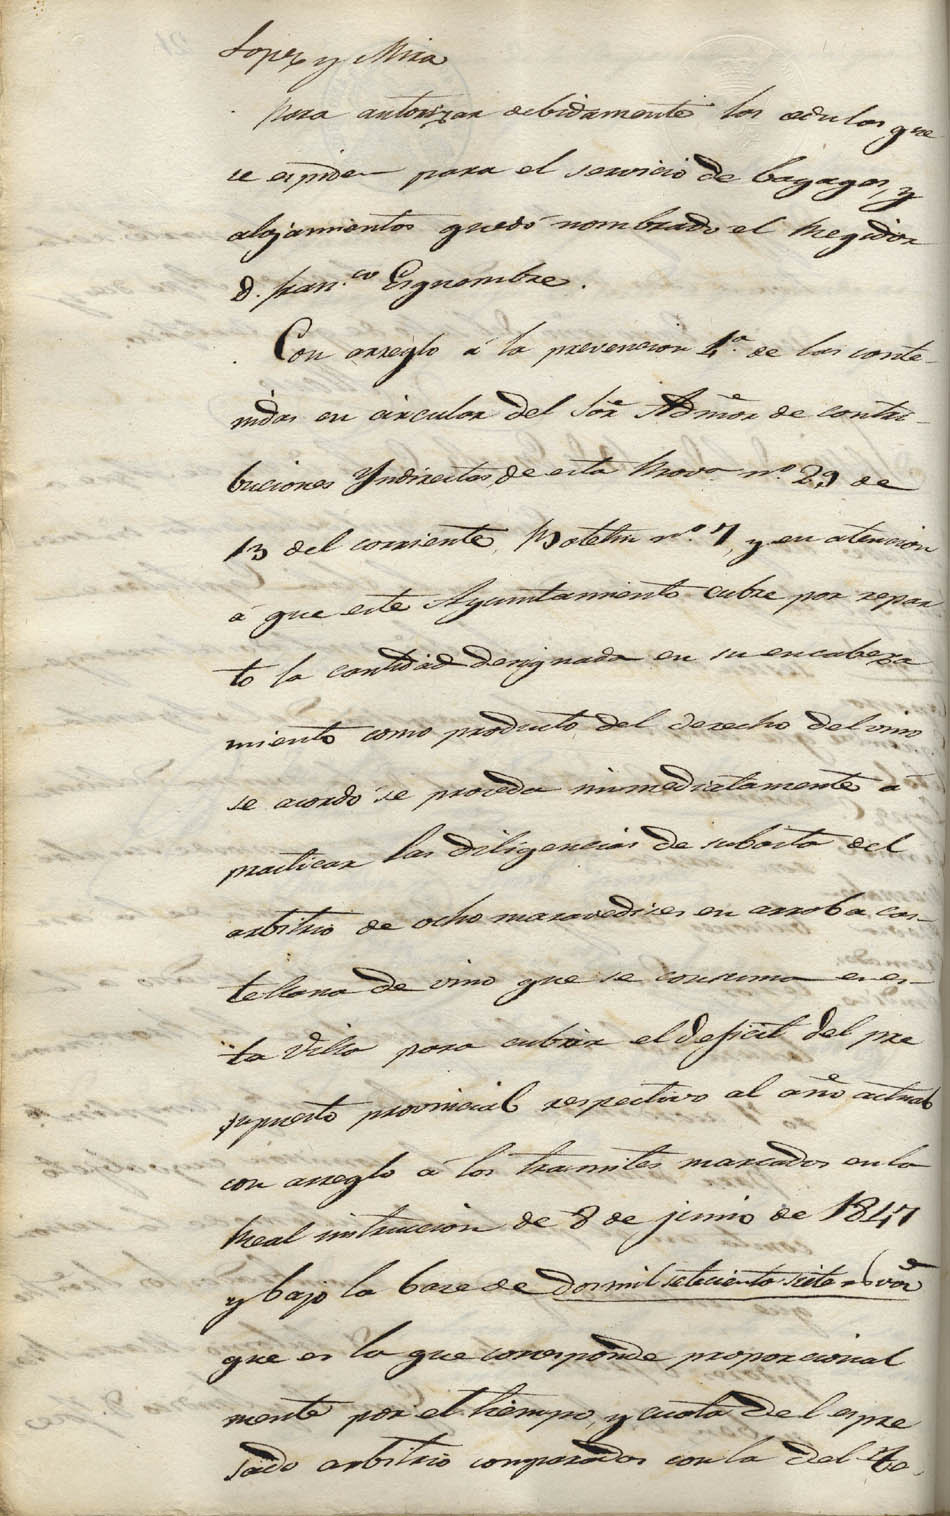 Lopez y Mira
Para autorizar debidamente las cedulas que
se espiden para el servicio de bagages, y
alojamientos quedó nombrado el Regidor
D. Fran.co Esquembre.
Con arreglo á la prevencion 4.a de las conte-
nidas en circular del Sor Admor de contri-
buciones Yndirectas de esta Prova no. 29 de
13 del corriente, Boletin no. 7, y en atencion
á que este Ayuntamiento cubre por repar-
to la cantidad designada en su encabeza
miento como producto del derecho del vino
se acordó se proceda inmediatamente a
practicar las diligencias de subasta del
arbitrio de ocho maravedises en arroba cas-
tellana de vino que se consuma en es-
ta Villa para cubrir el deficit del pre
supuesto provincial respectivo al año actual
con arreglo á los tramites marcados en la
Real instruccion de 8 de junio de 1847
y bajo la base de dos mil setecientos siete rs von
que es la que corresponde proporcional
mente por el tiempo, y cuota del espre
sado arbitrio comparados con la del